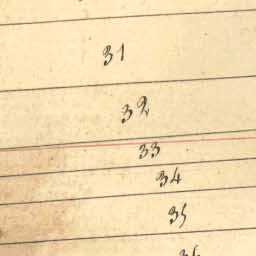 31
32
33
34
35
36